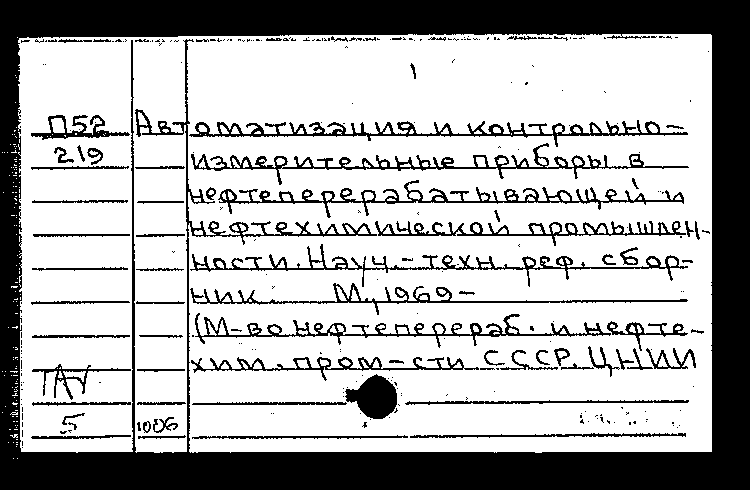 1
П52 Автоматизация и контрольно-
219 измерительные приборы в
нефтеперерабатывающей и
нефтехимической промышлен-
ности. Науч.-техн. реф. сбор-
ник. М., 1969-
(М-во нефтеперераб. и нефте-
хим. пром-сти СССР. ЦНИИ
5